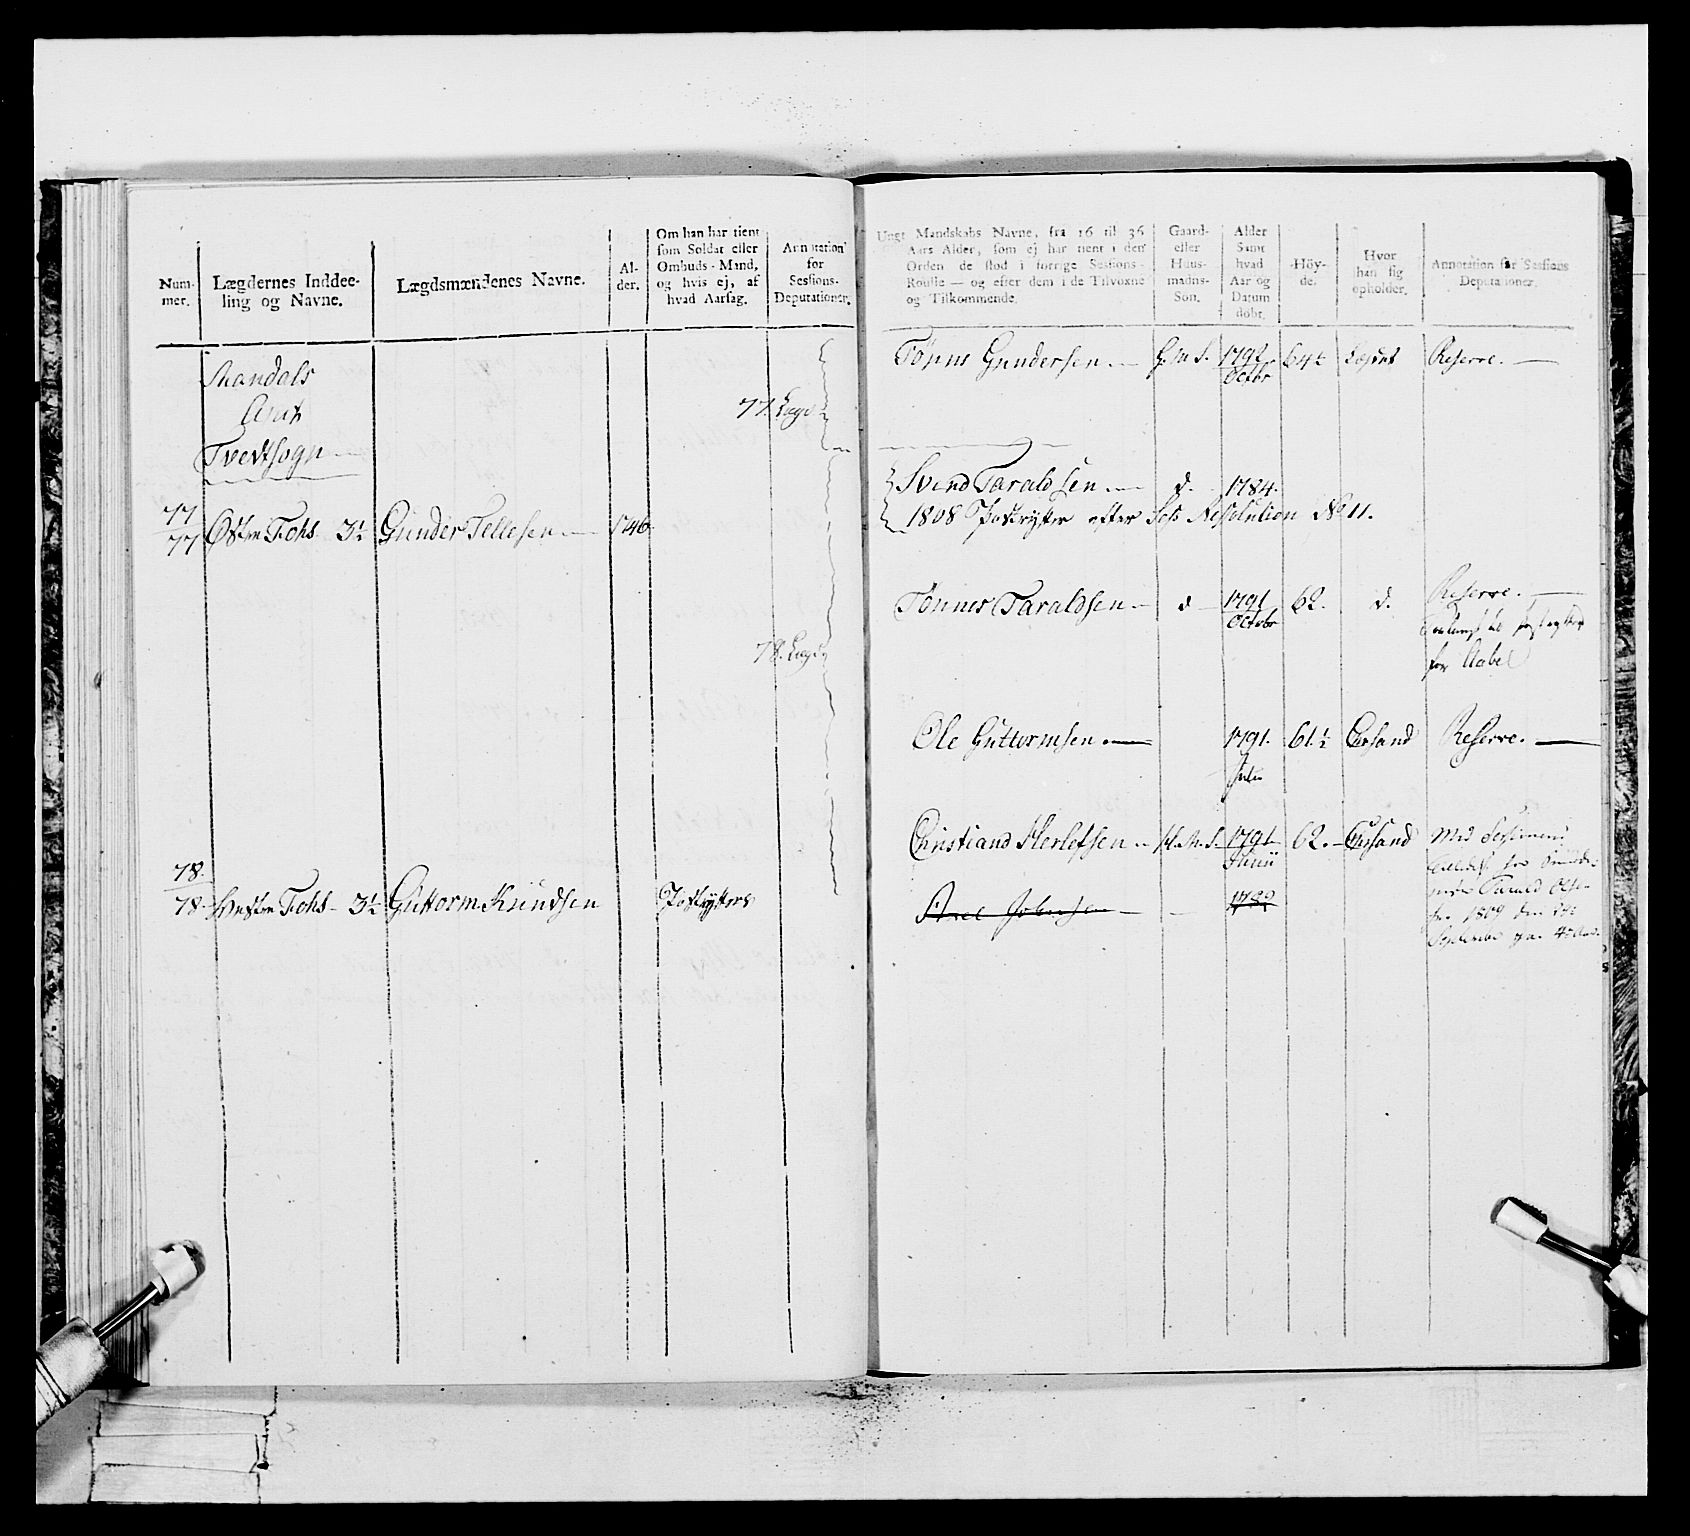 Num-
mer.
Lægdernes Inddee-
ling og Navne.
Lægdsmændenes Navne.
Al-
der.
Om han har tient
som Soldat eller
Ombuds-Mand,
og hvis ej, af
hvad Aarsag.
Annotation
for
Sessions-
Deputationer.
Mandals
Amt
Tvedtsogn
77
77 Østre Fohs 3½ Gunder Tellefsen 1746
77. Lægd
78. Lægd
78.
78. Fohs 3½ Guttorm Knudsen Postrytter
Ungt Mandskabs Navne, fra 16 til 36
Aars Alder, som ej har tient i den
Orden de stod i forrige Sessions-
Roulle — og efter dem i de Tilvoxne
og Tilkommende.
Gaard-
eller
Huus-
mands-
Søn.
Alder
Samt
hvad
Aar og
Datum
døbt.
Höy-
de.
Hvor
han sig
opholder.
Annotation for Sessions
Deputationer.
Tønnes Gundersen G. M. S. 1792 Octbr 64½ Reserve.
Svend Taraldsen d. 1784.
1808 Postrytter efter Sess Resolution No 11.
Tønnes Taraldsen d 1791 Octobr 62. d. Reserve.
til postrytter
for Aabel
Ole Guttormsen 1791. 61½ Chrsand Reserve.
Julii
Christiand Herlofsen H. M. S. 1791 Junii 62. Chrsand
Med Sessionens
Tilladelse for
Tarald Olse
1809 den
September
Axel Johnsen 1789